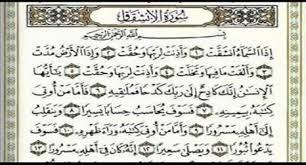 سُورَةُ الانْشِقَاقِ
بِسْمِ اللَّهِ الرَّحْمَٰنِ الرَّحِيمِ
إِذَا ٱلسَّمَآءُ ٱنشَقَّتْ ١ وَأَذِنَتْ لِرَبِّهَا وَحُقَّتْ ٢ وَإِذَا ٱلْأَرْضُ مُدَّتْ
٣ وَأَلْقَتْ مَا فِيهَا وَتَخَلَّتْ ٤ وَأَذِنَتْ لِرَبِّهَا وَحُقَّتْ ٥ يَٰٓأَيُّهَا
ٱلْإِنسَٰنُ إِنَّكَ كَادِحٌ إِلَىٰ رَبِّكَ كَدْحًا فَمُلَٰقِيهِ ٦ فَأَمَّا مَنْ أُوتِيَ
كِتَٰبَهُۥ بِيَمِينِهِۦ ٧ فَسَوْفَ يُحَاسَبُ حِسَابًا يَسِيرًا ٨ وَيَنقَلِبُ
إِلَىٰٓ أَهْلِهِۦ مَسْرُورًا ٩ وَأَمَّا مَنْ أُوتِيَ كِتَٰبَهُۥ وَرَآءَ ظَهْرِهِۦ ١٠ فَسَوْفَ
يَدْعُوا۟ ثُبُورًا ١١ وَيَصْلَىٰ سَعِيرًا ١٢ إِنَّهُۥ كَانَ فِىٓ أَهْلِهِۦ مَسْرُورًا ١٣